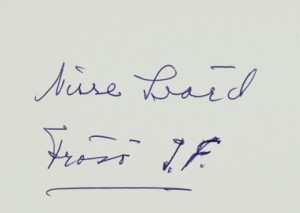 Nisse Lvard
Frösö I.F.